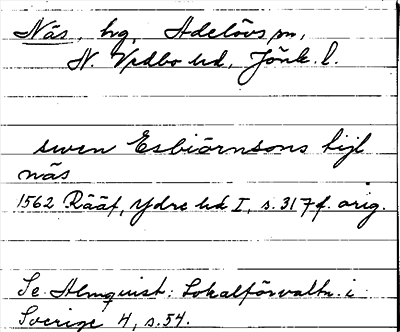 Näs, hg, Adelövs sn,
N. Vedbo hd, Jönk. l.
swen Esbiörnsons hijl
näs
1562 Rääf, Ydre hd I, s. 317 f. orig.
Se Almquist: Lokalförvaltn. i
Sverige 4, s. 54.